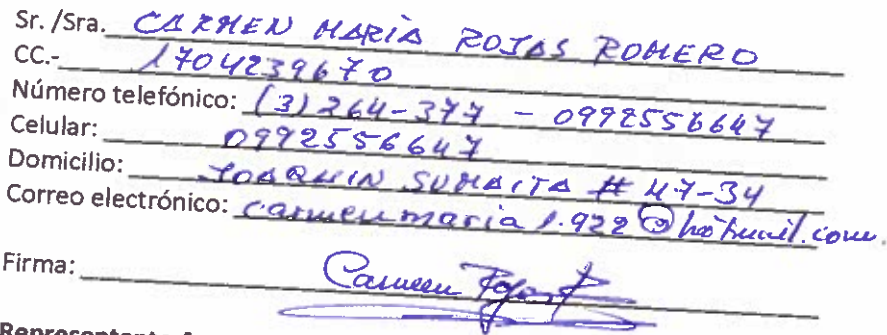 Sr. /Sra. CARMEN MARÍA ROJAS ROMERO
CC.- 1704239670
Número telefónico: (3)264-377 - 0992556647
Celular: 0992556647
Domicilio: JOAQUIN SUMAITA # 47-34
Correo electrónico: carmenmaria1.922@hotmail.com.
Firma: Carmen Rojas
Representante